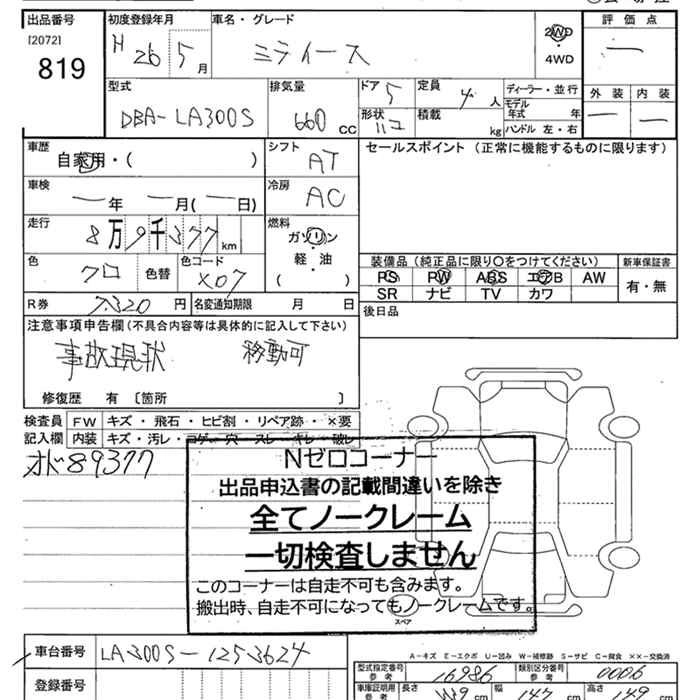 出品番号 初度登録年月 車名・グレード 評価点
[2072] H 26 5月 ミライース 2WD ・ 4WD 一
819
型式 排気量 ドア 5 定員 4人 ディーラー・並行 外装 内装
DBA-LA300S 660 CC 形状 ハコ 積載 kg モデル年式 年 一 一
ハンドル 左・右
車歴 シフト セールスポイント(正常に機能するものに限ります)
自家用・( ) AT
車検 冷房
一年 一月(一日) AC
走行 燃料
8万9千377km ガソリン・軽油
( )
色 色コード 装備品(純正品に限り〇をつけてください) 新車保証書
クロ 色替 X07 PS PW ABS エアB AW 有・無
SR ナビ TV カワ
R券 7320円 名変通知期限 月 日 後日品
注意事項申告欄(不具合内容等は具体的に記入して下さい)
事故現状 移動可
修復歴 有 〔箇所 〕
検査員 FW キズ・飛石・ヒビ割・リペア跡・×要
記入欄 内装 キズ・汚レ・コゲ・穴・スレ・キレ・破レ
オド89377
Nゼロコーナー
出品申込書の記載間違いを除き
全てノークレーム
一切検査しません
このコーナーは自走不可も含みます。
搬出時、自走不可になってもノークレームです。
スペア
A-キズ E-エクボ U-凹み W-補修跡 S-サビ C-腐食 ××-交換済
車台番号 LA300S-1253624 型式指定番号 参考 16986 類別区分番号 参考 0006
登録番号 車庫証明用 参考 長さ 339cm 幅 147cm 高さ 149cm